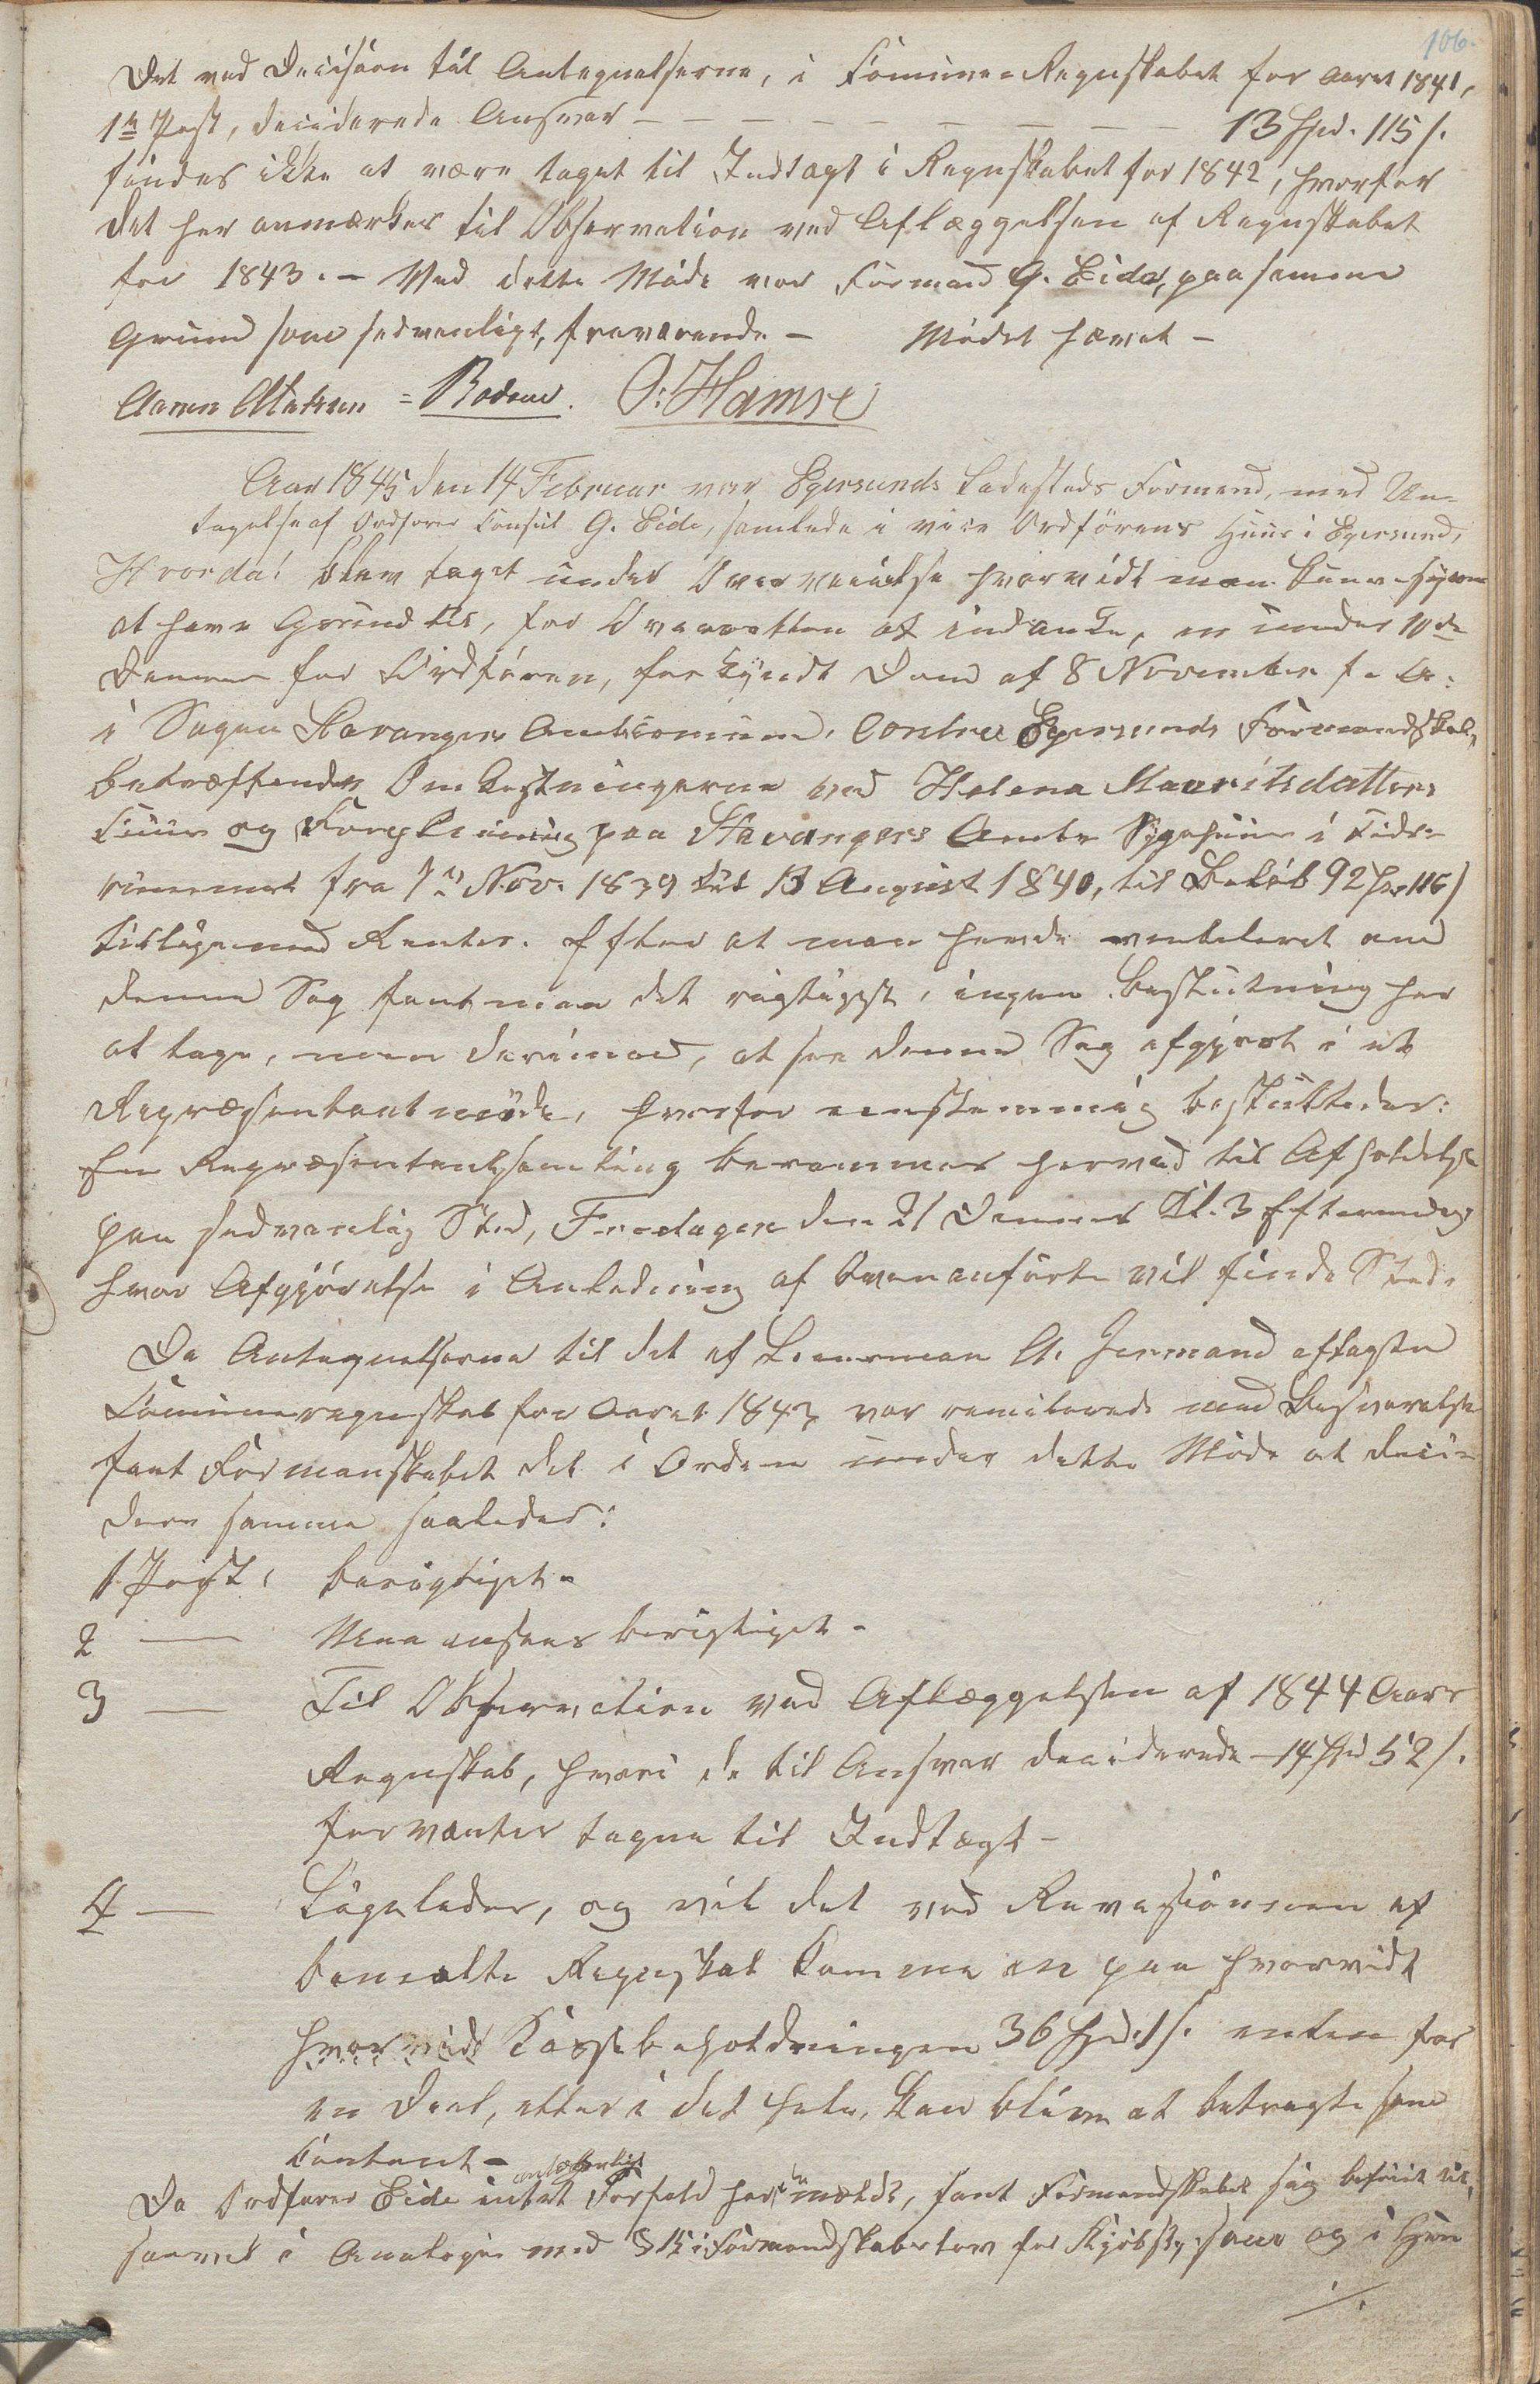 106.
Det ved Decision til Antegnelserne, i Comune-Regnskabet for Aaret 1841,
1ste Post, deciderede Ansvar — — — — — — — — 13 Spd. 115 s.
findes ikke at være taget til Indtægt i Regnskabet for 1842, hvorfor
det her anmærkes til Observation ved Aflæggelsen af Regnskabet
for 1843. – Ved dette Møde var Formand G. Eide, paa samme
Grund som sedvanligt, fraværende – Mødet hævet –
Aanen Mathesen = Rodvand. O: Hamre
Aar 1845 den 14 Februar var Egersunds Ladesteds Formænd, med Un-
tagelse af Ordfører Consul G. Eide, samlede i vice Ordførens Huus i Egersund,
Hvorda: blev taget under Overveielse hvorvidt man kunne synes
at have Grund til, for Overretten at indanke, en under 10de
dennes for Ordføren, forkyndt Dom af 8 November f. A.
i Sagen Stavanger Amtscomune, Contra Egersunds Formandskab,
betræffende Omkostningerne ved Helena Mauritsdatters
Cuur og Forpleining paa Stavangers Amts Sygehuus i Tids-
rummet fra 7de Nov. 1839 til 13 August 1840, til Beløb 92 Spd 116 s
tilligemed Renter. Efter at man havde ventileret om
denne Sag fant man det rigtigst, ingen Beslutning her
at tage, men derimod, at see denne Sag afgjort i et
Repræsentantmøde, hvorfor eenstemmig besluttedes:
En Repræsentantsamling berammes herved til Afholdelse
paa sedvanlig Sted, Fredagen den 21 Dennes Kl. 3 Eftermidag,
hvor Afgjørelse i Anledning af Ovenanførte vil finde Sted.
Da Antegnelserne til det af Kjærman A. Jermand aflagte
Comuneregnskab for Aaret 1843 var remiterede med Besvarelse
fant Formanskabet det i Orden under dette Møde at deci-
dere samme saaledes:
1 Post, berigtiget –
2 — Maa ansees berigtiget –
3 — Til Observation ved Aflæggelsen af 1844 Aars
Regnskab, hvori de til Ansvar deciderede – 14 Spd 52 s.
forventes tagne til Indtægt –
4 — Ligeledes, og vil det ved Revisionen af
benævnte Regnskab komme an paa hvorvidt
hvorvidt Kassebeholdningen 36 Spd. 1 s. enten for
en Deel, eller i det hele, kan blive at betragte som
Contant –
Da Ordfører Eide intet Forfald har anmeldt, fant Formandskabet sig beføiet til,
saavel i Analogie med § 15 i Formandskabsloven for Kjøbst. som og i Hen
./.